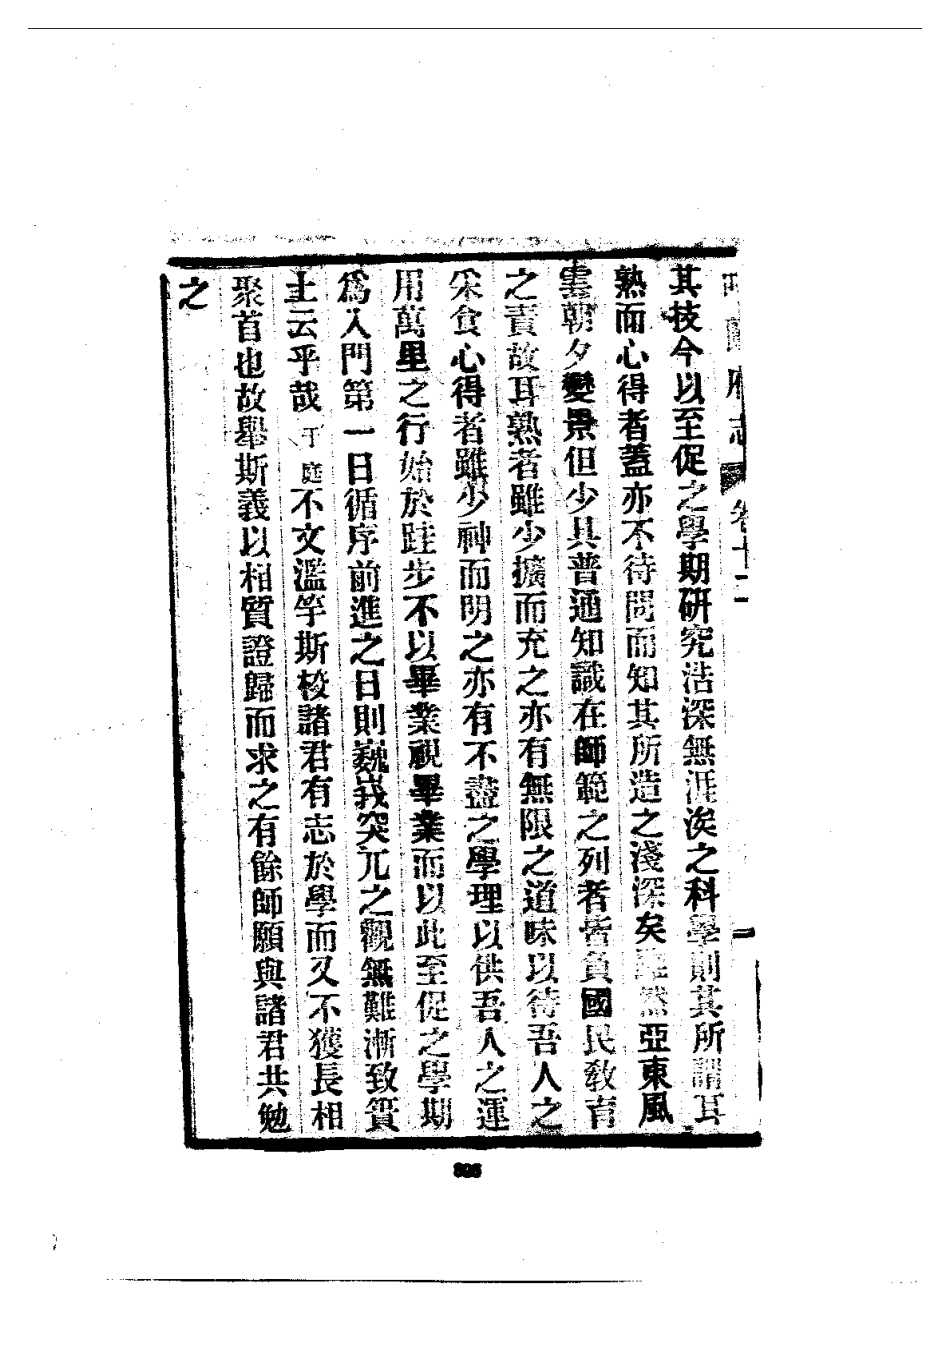 府志 卷十二
其技今以至促之學期研究浩深無涯涘之科學則其所謂耳
熟而心得者蓋亦不待問而知其所造之淺深矣雖然亞東風
雲朝夕變景但少具普通知識在師範之列者皆負國民敎育
之責故耳熟者雖少擴而充之亦有無限之道味以待吾人之
采食心得者雖少神而明之亦有不盡之學理以供吾人之運
用萬里之行始於跬步不以畢業視畢業而以此至促之學期
爲入門第一日循序前進之日則巍峩突兀之觀無難漸致賓
士云乎哉 庭不文濫竽斯校諸君有志於學而又不獲長相
聚首也故舉斯義以相質證歸而求之有餘師願與諸君共勉
之